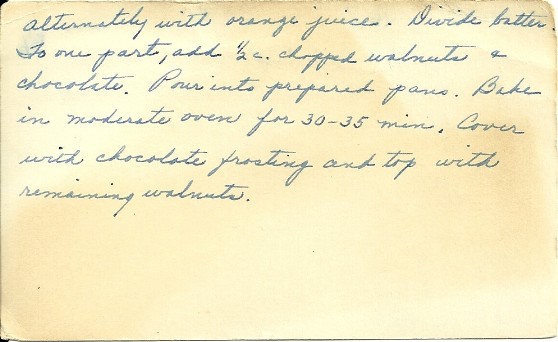 alternately with orange juice. Divide batter.
To one part, add 1/2 c. chopped walnuts &
chocolate. Pour into prepared pans. Bake
in moderate oven for 30-35 min. Cover
with chocolate frosting and top with
remaining walnuts.